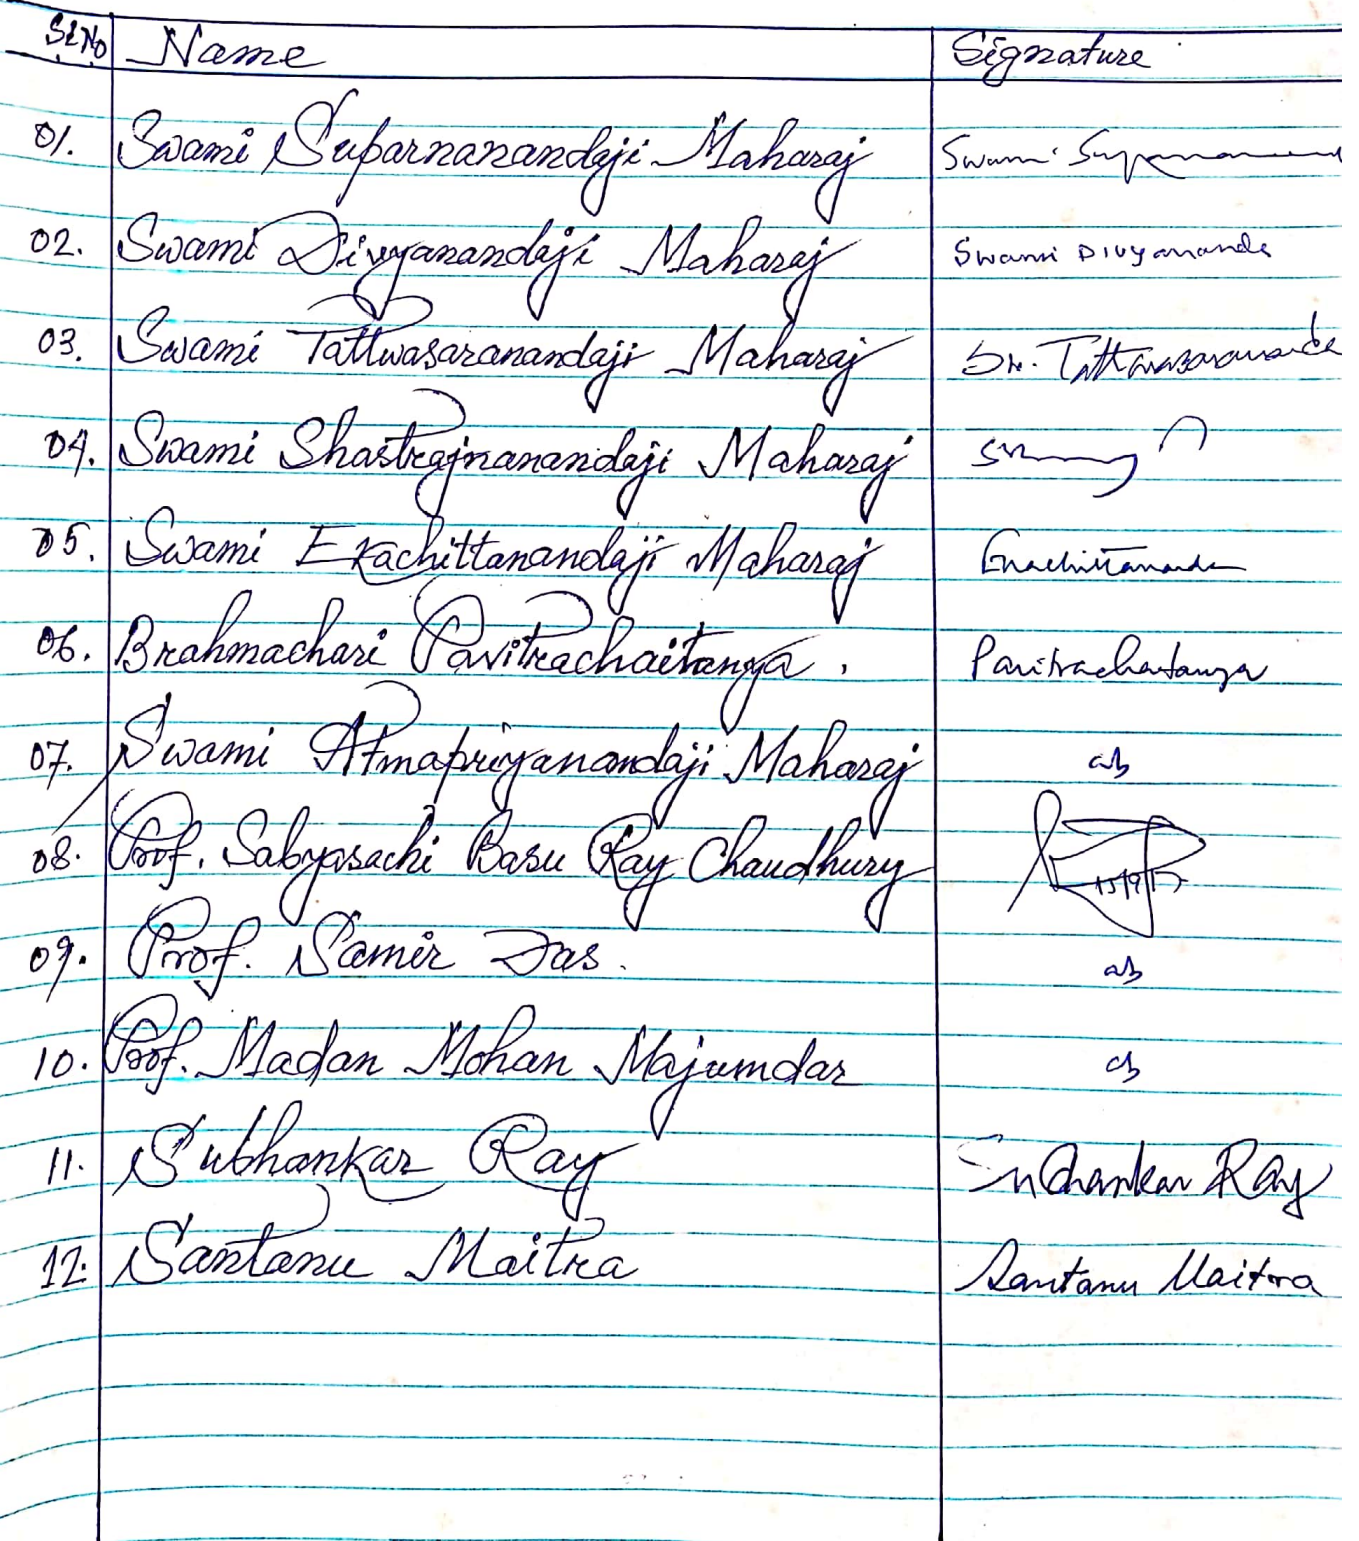 Sl No Name Signature
01. Swami Suparnanandaji Maharaj Swami
02. Swami Divyanandaji Maharaj Swami Divyananda
03. Swami Tattwasaranandaji Maharaj Sw. Tattwasarananda
04. Swami Shastrajnanandaji Maharaj
05. Swami Ekachittanandaji Maharaj Ekachittananda
06. Brahmachari Pavitrachaitanya. Pavitrachaitanya
07. Swami Atmapriyanandaji Maharaj ab
08. Prof. Sabyasachi Basu Ray Chaudhury 15/9/17
09. Prof. Samir Das. ab
10. Prof. Madan Mohan Majumdar ab
11. Subhankar Ray Subhankar Ray
12. Santanu Maitra Santanu Maitra